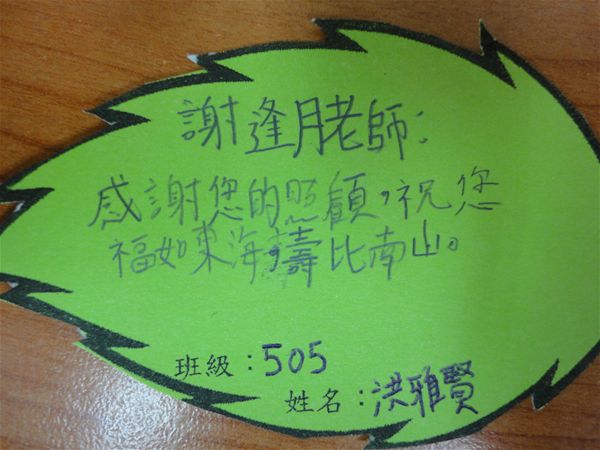 謝逢月老師:
感謝您的照顧,祝您
福如東海壽比南山。
班級:505
姓名:洪雅賢